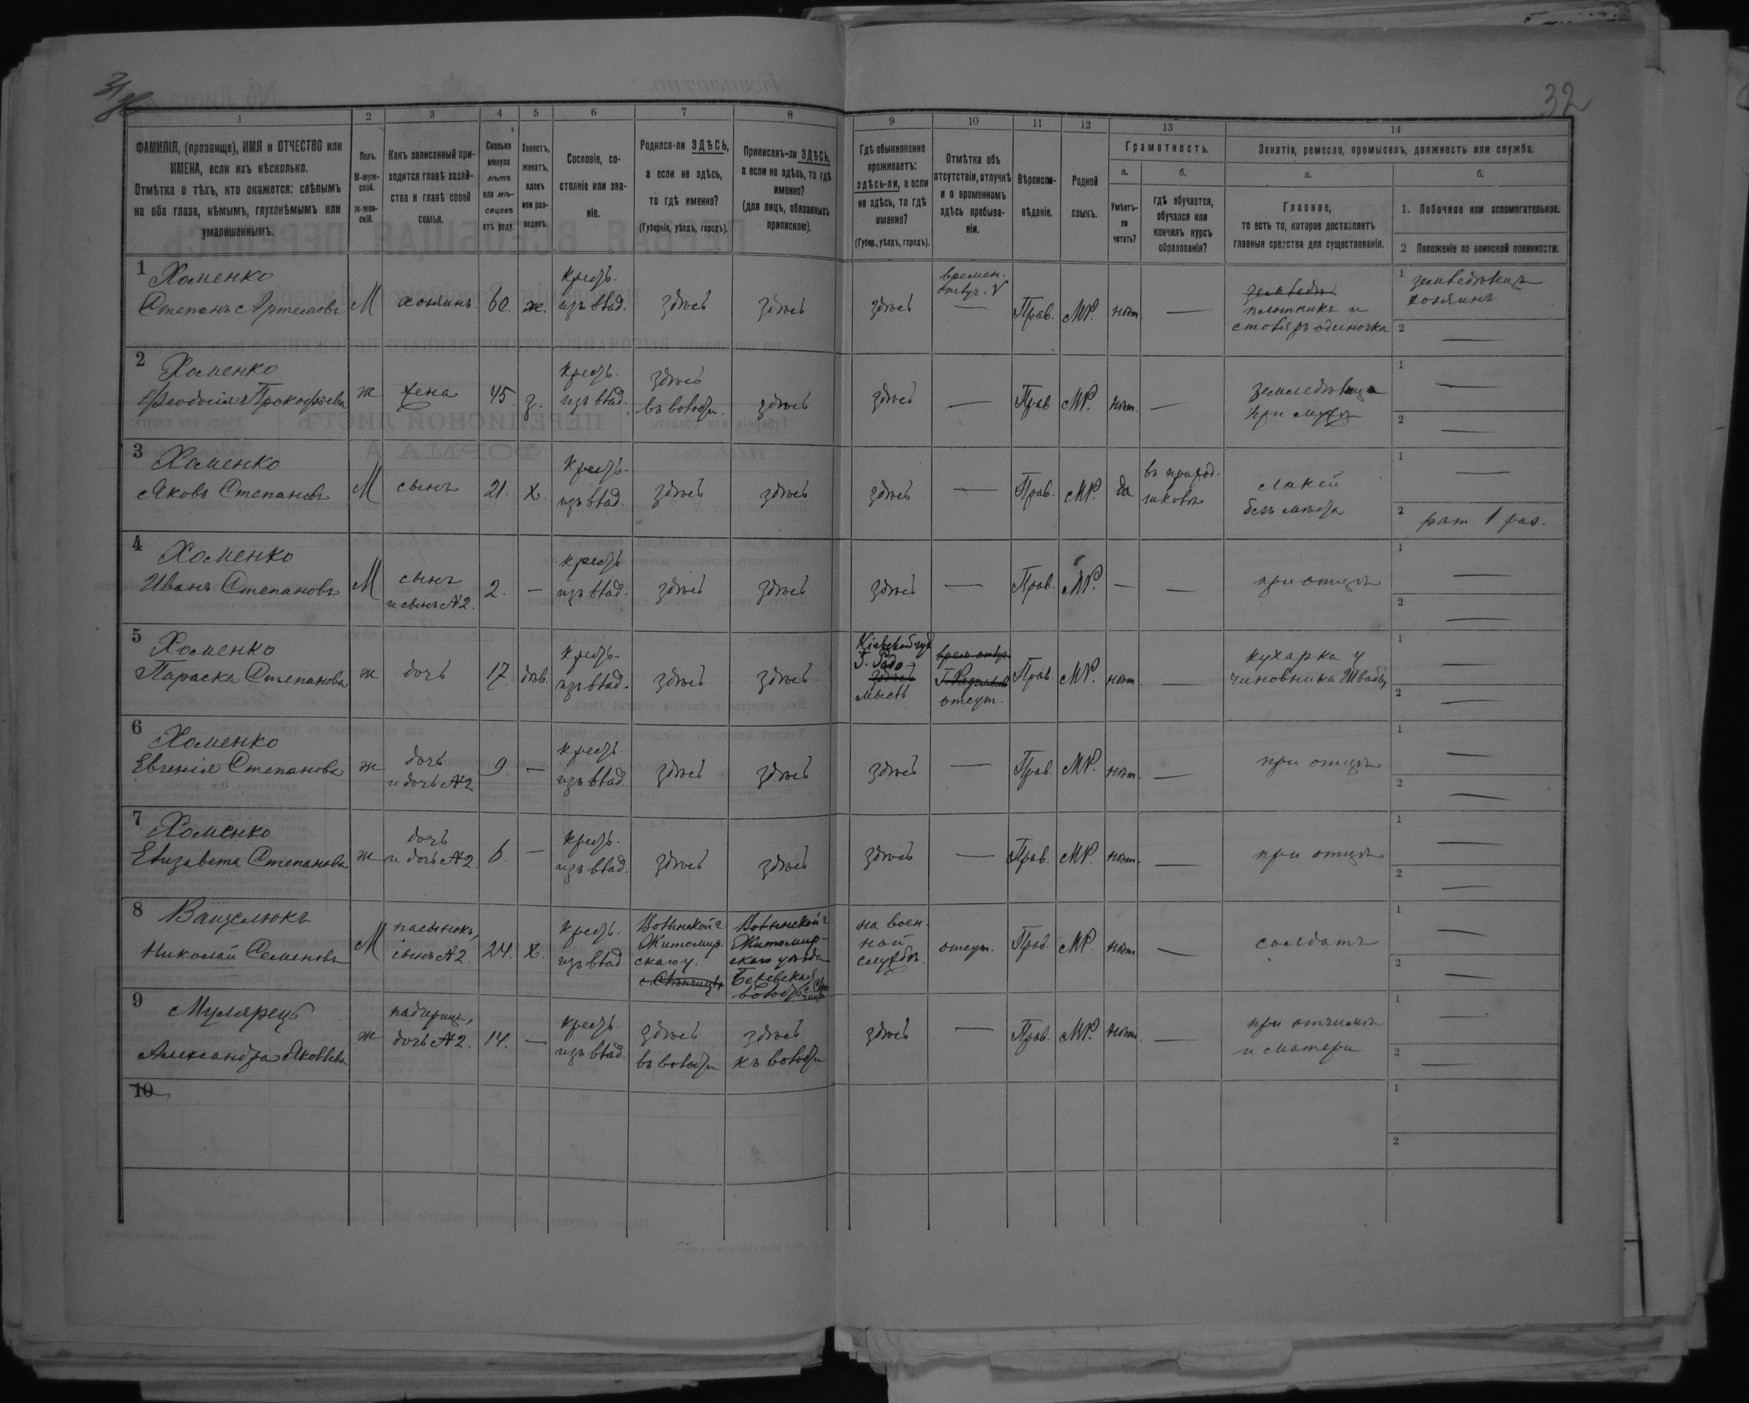 32
1 2 3 4 5 6 7 8 9 10 11 12 13 14
ФАМИЛІЯ, (прозвище), ИМЯ и ОТЧЕСТВО или
ИМЕНА, если ихъ нѣсколько.
Отмѣтка о тѣхъ, кто окажется: слѣпымъ
на оба глаза, нѣмымъ, глухонѣмымъ или
умалишеннымъ.
Полъ.
М-муж-
ской.
ж-жен-
скій.
Какъ записанный при-
ходится главѣ хозяй-
ства и главѣ своей
семьи.
Сколько
минуло
лѣтъ
или мѣ-
сяцевъ
отъ роду.
Холостъ,
женатъ,
вдовъ
или раз-
веденъ.
Сословіе, со-
стояніе или зва-
ніе.
Родился-ли ЗДѢСЬ,
а если не здѣсь,
то гдѣ именно?
(Губернія, уѣздъ, городъ).
Приписанъ-ли ЗДѢСЬ,
а если не здѣсь, то гдѣ
именно?
(для лицъ, обязанныхъ
припискою).
Гдѣ обыкновенно
проживаетъ:
здѣсь-ли, а если
не здѣсь, то гдѣ
именно?
(Губер., уѣздъ, городъ).
Отмѣтка объ
отсутствіи, отлучкѣ
и о временномъ
здѣсь пребыва-
ніи.
Вѣроиспо-
вѣданіе.
Родной
языкъ.
Грамотность.
а.
Умѣетъ-
ли
читать?
б.
Гдѣ обучается,
обучался или
кончилъ курсъ
образованія?
Занятія, ремесло, промыселъ, должность или служба.
а.
Главное,
то есть то, которое доставляетъ
главныя средства для существованія.
б.
1. Побочное или вспомогательное.
2 Положеніе по воинской повинности.
1 Хоменко
Степанъ Артемовъ М хозяинъ 60. ж. крест. изъ влад. здѣсь здѣсь здѣсь времен. отлуч. — Прав. МР. нѣт. —
плотникъ и
столяръ одиночка
1 земледѣлецъ
хозяинъ
2 —
2 Хоменко
Феодосія Прокофіева ж жена 45. з. крест. изъ влад. здѣсь
въ волости. здѣсь здѣсь — Прав МР. нѣт. —
земледѣлица
при мужѣ
1 —
2 —
3 Хоменко
Яковъ Степановъ М сынъ 21. х. крест. изъ влад. здѣсь здѣсь здѣсь — Прав. МР. да
лакей
безъ мѣста
1 —
2 рат. 1 раз.
4 Хоменко
Иванъ Степановъ М сынъ
и сынъ №2. 2. — крест. изъ влад. здѣсь здѣсь здѣсь — Прав. МР. — — при отцѣ
1 —
2 —
5 Хоменко
Параска Степанова ж дочь 17 дѣв. крест. изъ влад. здѣсь здѣсь
Кіевской губ
Г. Радо-
здѣсь
мысль
отсут. Прав. МР. нѣт. —
кухарка у
чиновника
1 —
2 —
6 Хоменко
Евгенія Степанова ж дочь
и дочь №2 9. — крест. изъ влад. здѣсь здѣсь здѣсь — Прав. МР. нѣт. — при отцѣ
1 —
2 —
7 Хоменко
Елизавета Степанова ж дочь
и дочь №2 6. — крест. изъ влад. здѣсь здѣсь здѣсь — Прав. МР. нѣт. — при отцѣ
1 —
2 —
8 Ващелюкъ
Николай Семеновъ М пасынокъ,
сынъ №2. 24. х. крест. изъ влад.
Волынской г
Житомир.
скаго у.
Волынской г
Житомир-
скаго уѣзда
на воен-
ной
службѣ.
отсут. Прав. МР. нѣт. — солдатъ
1 —
2 —
9 Мулярецъ
Александра Яковлева ж падчерица,
дочь №2. 14. — крест. изъ влад. здѣсь
въ волости здѣсь
къ волости здѣсь — Прав. МР. нѣт. —
при отчимѣ
и матери
1 —
2 —
10
1
2